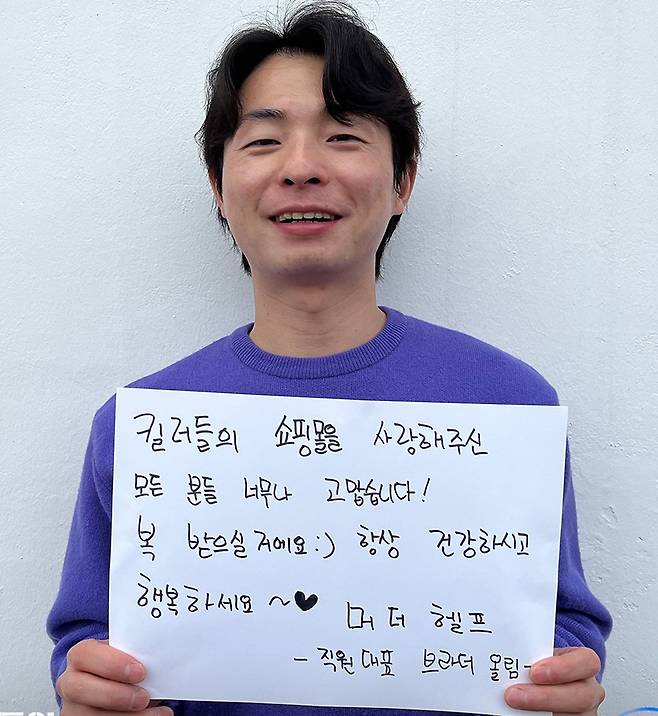 킬러들의 쇼핑몰을 사랑해주신
모든 분들 너무나 고맙습니다!
복 받으실거에요:) 항상 건강하시고
행복하세요 ~♥ 머더 헬프
- 직원대표 브라더 올림-